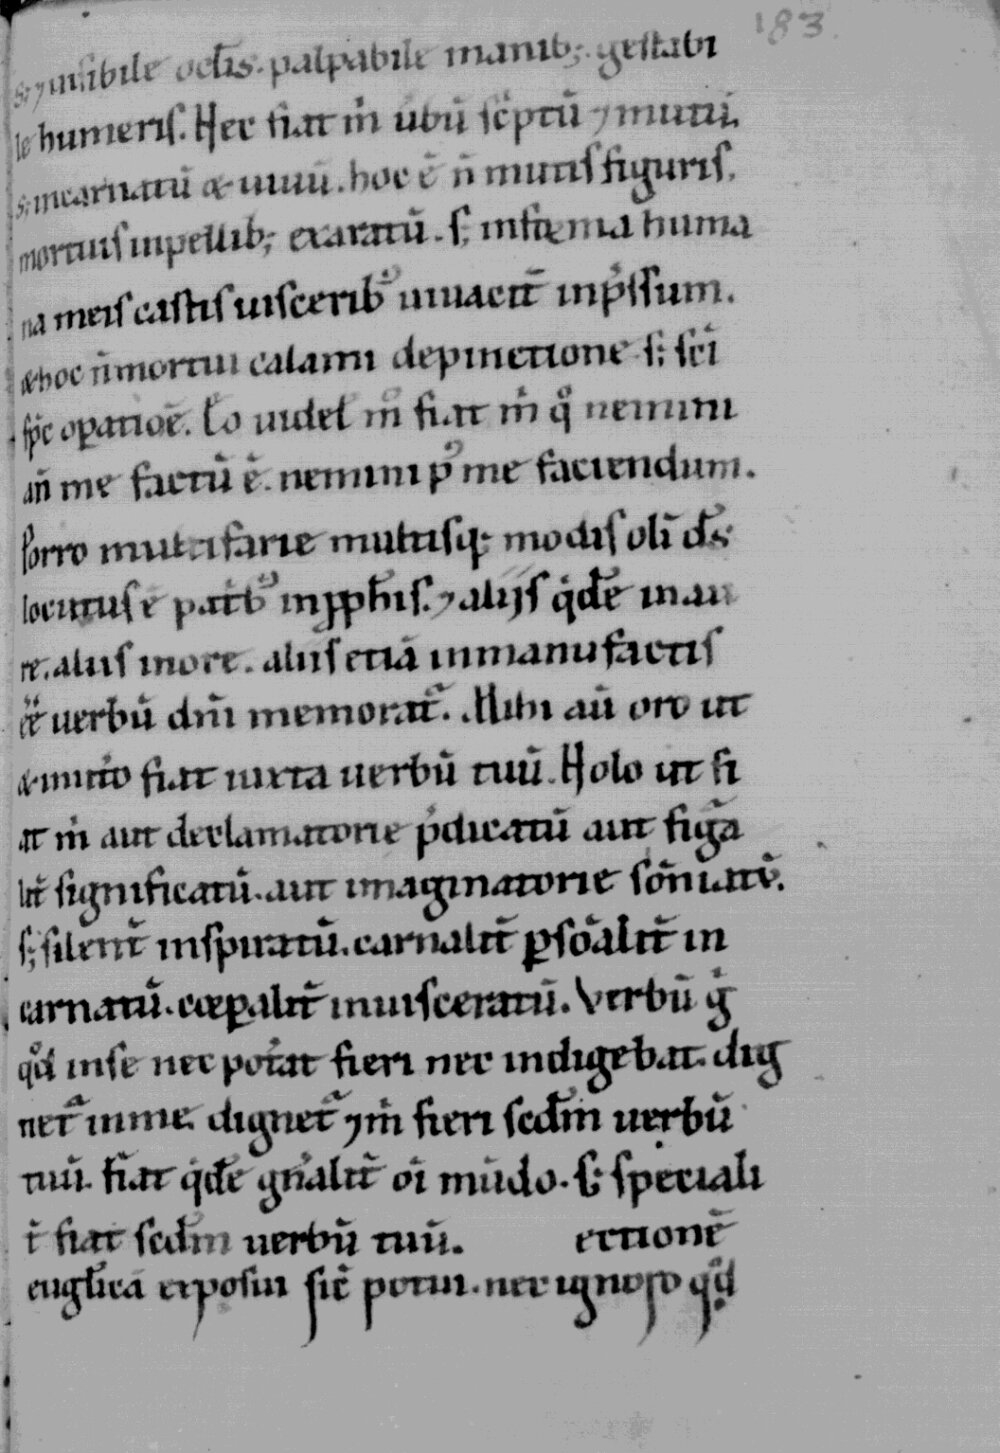 183
s; ⁊ uisibile oculis. palpabile manib; gestabi
le humeris. Nec fiat m̄ ūbū sc̄ptū ⁊ mutū.
s; incarnatū & uiuū. hoc ē n̄ mutis figuris.
mortuis in pellib; exaratū. s; in forma huma
na meis castis uiscerib᷒ uiuacit̄ inp̄ssum.
& hoc n̄ mortui calami depinctione s; sc̄i
sp̄c op̄atiōe. Eo uidel m̊ fiat m̄ q̊ nemini
an̄ me factū ē. nemini p᷒ me faciendum.
Porro multifarie multisq; modis olī ds̄
locutus ē patrib᷒ in p̱phis. ⁊ alijs q̄dē in au
re. aliis in ore. aliis etiā in manu factis
ēē uerbū dn̄i memorat᷒. Mihi aū oro ut
& in utō fiat iuxta uerbū tuū. Nolo ut fi
at m̄ aut declamatorie p̄dicatū aut figā
lit̄ significatū. aut imaginatorie sōniatū.
s; silent̄ inspiratū. carnalit̄ ꝑsōalit̄ in
carnatū. coeꝑalit̄ inuisceratū. Verbū g̊
qd̄ in se nec pot̄at fieri nec indigebat. dig
net᷒ in me. dignet᷒ ⁊ m̄ fieri scdm̄ uerbū
tuū. fiat q̄dē gn̄alit̄ oī mūdo. s; speciali
t̄ fiat scdm̄ uerbū tuū. ectionē
euglicā exposui sic̄ potui. nec ignoro qd̄